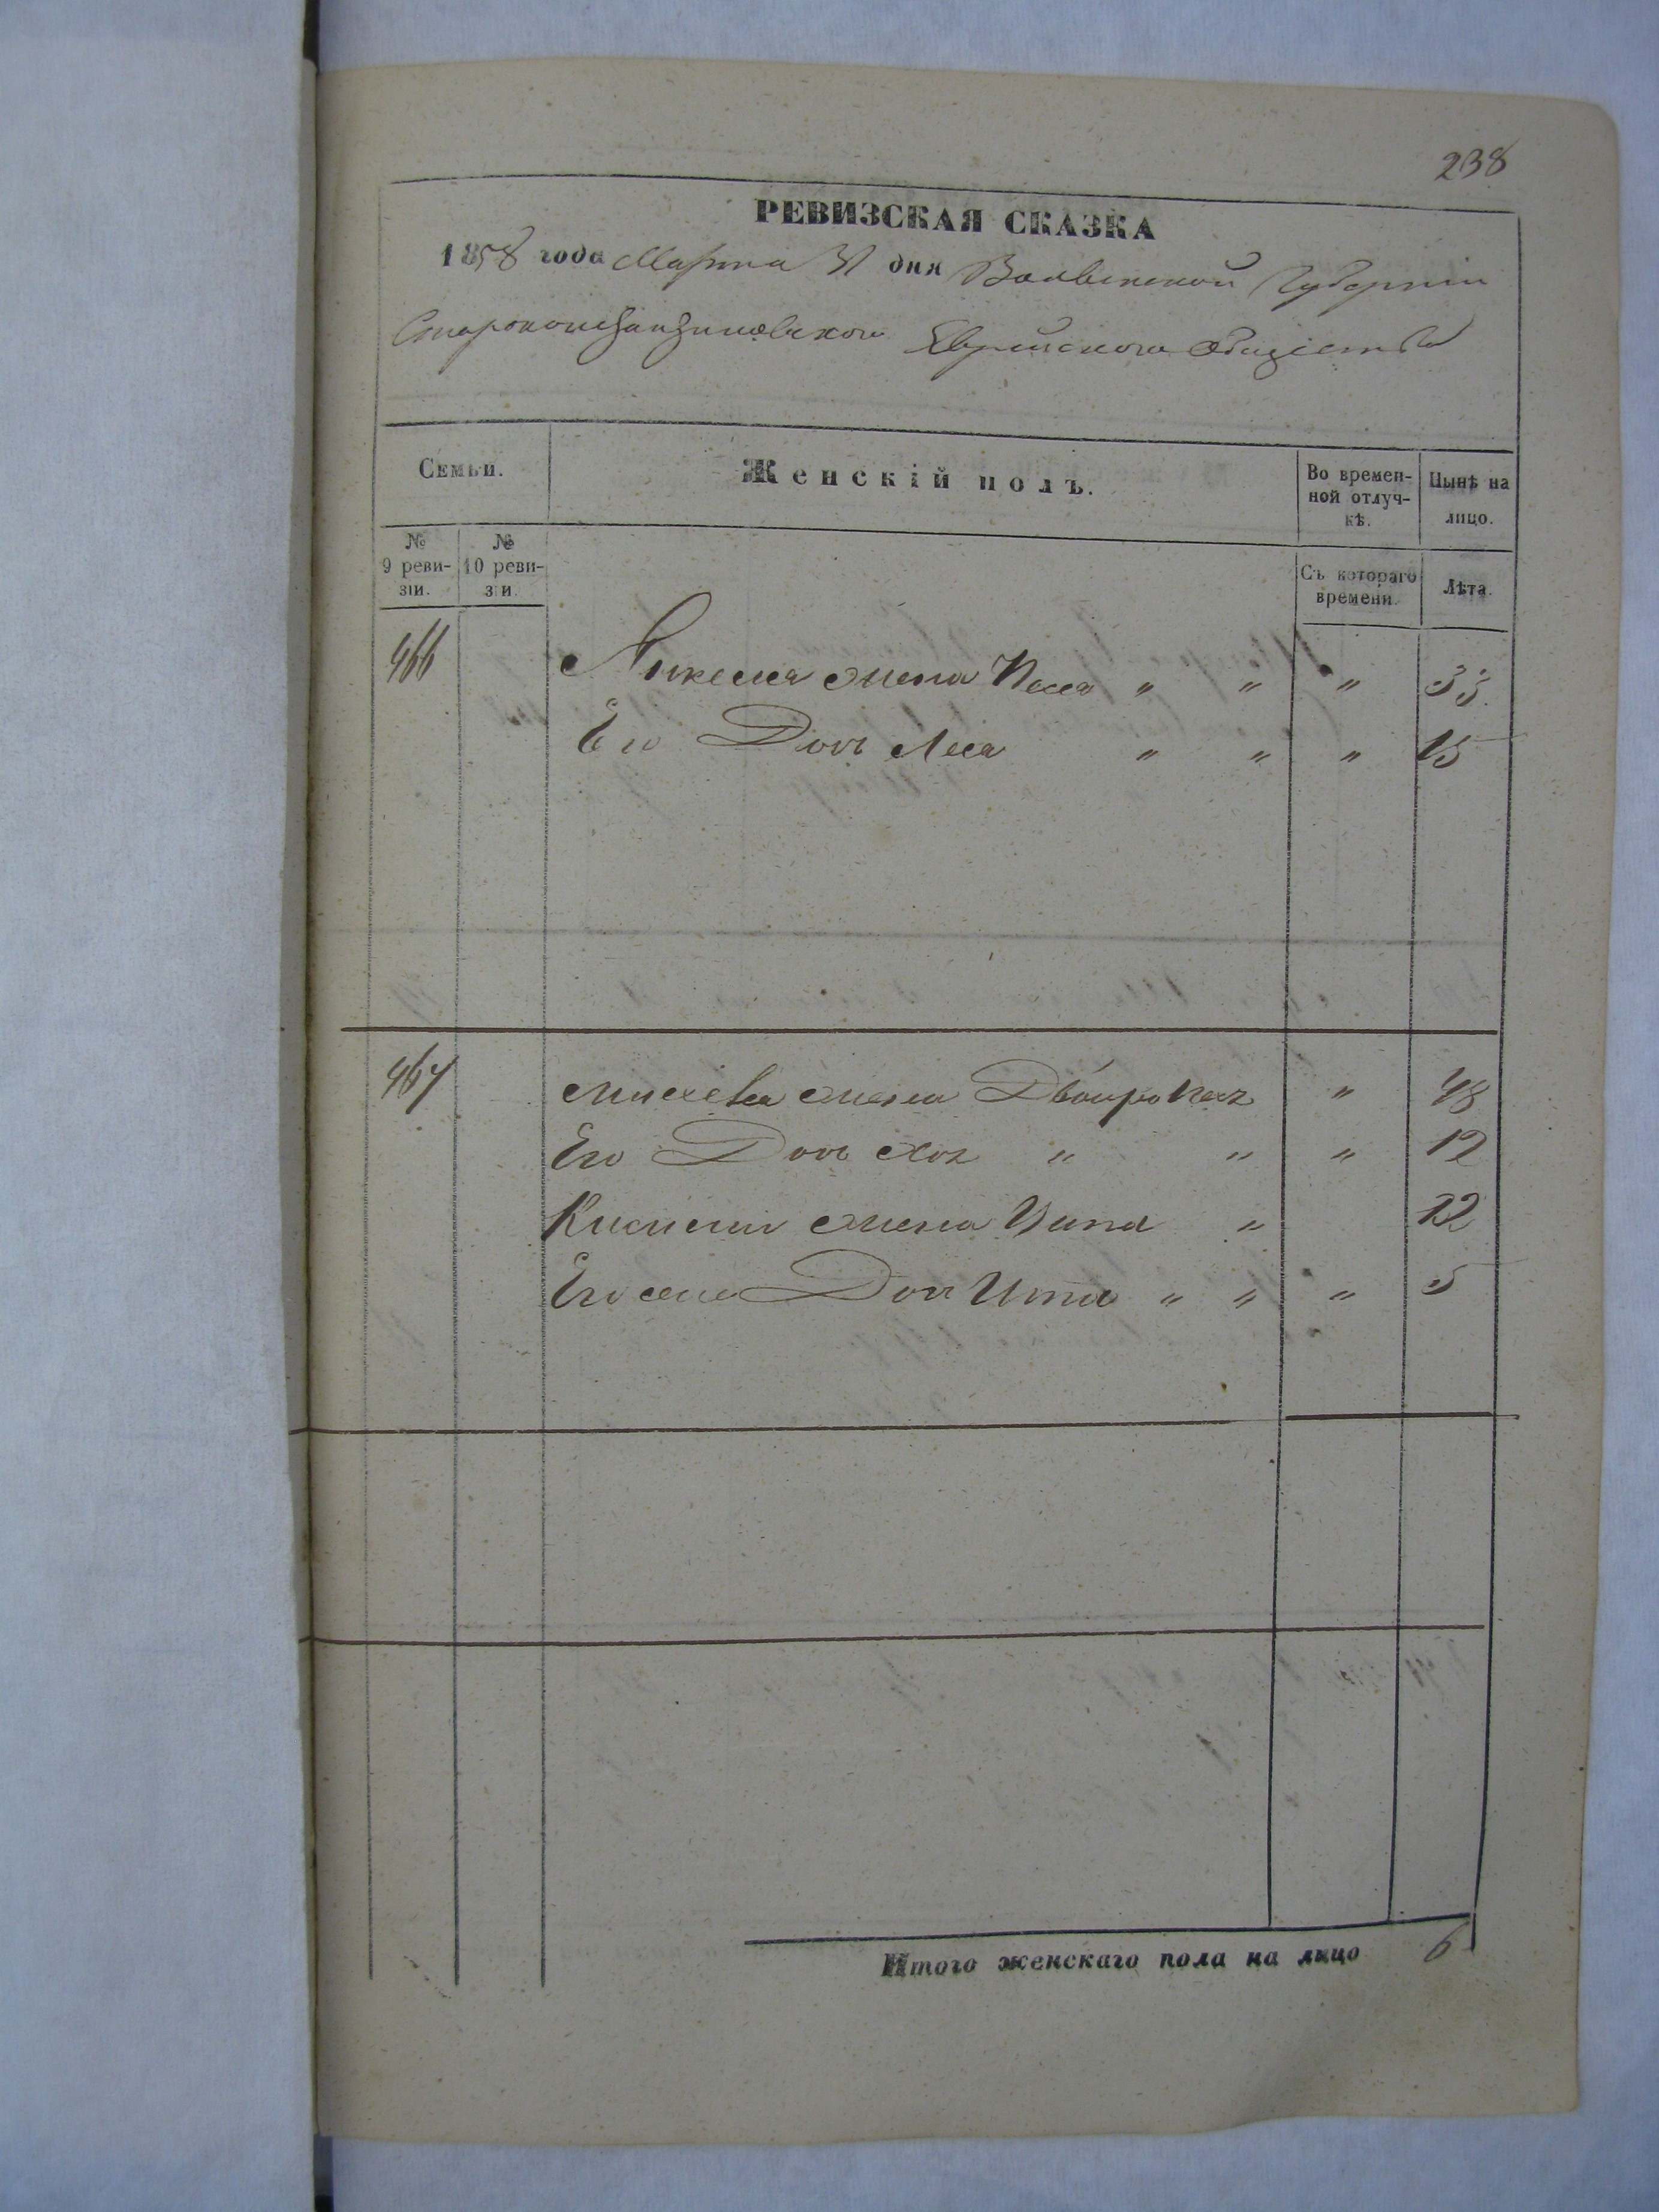 238
РЕВИЗСКАЯ СКАЗКА
1858 года Марта 31 дня Волынской Губерніи
Староконстантиновского Еврейского Общества
Семьи.
Женскій полъ.
Во времен-
ной отлуч-
кѣ.
Нынѣ на
лицо.
№
9 реви-
зіи.
№
10 реви-
зіи.
Съ котораго
времени.
Лѣта.
466 жена Песя " " " 35
Его Дочь Лея " " " 15
467 жена Двойра " 48
Его Дочь " " " 12
жена "  22
Его Дочь Ита " " " 5
Итого женскаго пола на лицо 6